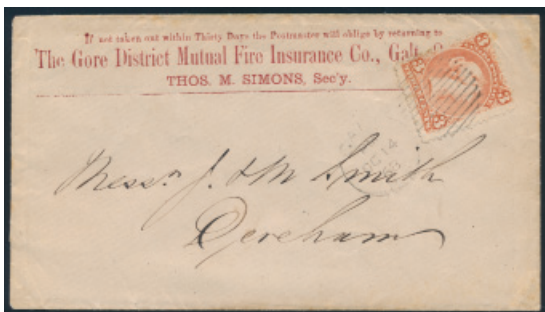 If not taken out within Thirty Days the Postmaster will oblige by returning to
The Gore District Mutual Fire Insurance Co., Galt,
THOS. M. SIMONS, Sec'y.
3
3
3
3
OC 14
68
Messrs J. & M Smith
Dereham